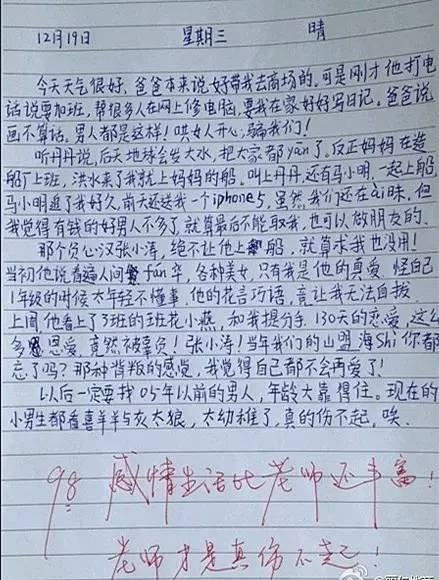 12月19日 星期三 晴
今天天气很好，爸爸本来说好带我去商场的。可是刚才他打电
话说要加班，帮很多人在网上修电脑，要我在家好好写日记。爸爸说
画不算话。男人都是这样！哄女人开心，骗我们！
听丹丹说，后天地球会发大水，把大家都yān了。反正妈妈在造
船厂上班，洪水来了我就上妈妈的船。叫上丹丹还有马小明，一起上船，
马小明追了我好久，前天还送我一个iphone5，虽然，我们还在ài昧，但
我觉得有钱的好男人不多了，就算最后不能取我，也可以做朋友的。
那个负心汉张小涛，绝不让他上船，就算求我也没用！
当初他说看遍人间fán华，各种美女，只有我是他的真爱，怪自己
1年级的时候太年轻不懂事，他的花言巧语，竟让我无法自拔，
上周他看上了3班的班花小燕，和我提分手，130天的恋爱，这么
多恩爱，竟然被辜负！张小涛！当年我们的山盟海Shì你都
忘了吗？那种背叛的感觉，我觉得自己都不会再爱了！
以后一定要找05年以前的男人，年龄大靠得住。现在的
小男生都看喜羊羊与灰太狼，太幼稚了，真的伤不起，唉
98 感情生活比老师还丰富！
老师才是真伤不起！